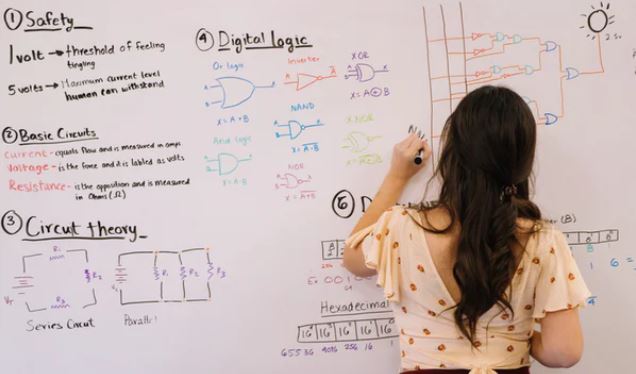 ① Safety
1 volt → threshold of feeling
tingling
5 volts → Maximum current level
human can withstand
② Basic Circuits
Current - equals flow and is measured in amps
Voltage - is the force and it is labled as volts
Resistance - is the opposition and is measured
in Ohms (Ω)
③ Circut theory
R1
R2
R3
VT
Series Circut
R1
R2
R3
Parallel
④ Digital logic
Or logic
A
B
X
X = A + B
And logic
A
B
X
X = A · B
Inverter
A
A̅
NAND
A
B
X
X = A̅·̅B̅
NOR
A
B
X
X = A̅+̅B̅
XOR
A
B
X
X = A⊕B
XNOR
A
B
X
2.5v
⑤ D
(B)
Ex. 001
Hexadecimal
16 16 16 16
65536 4096 256 16 1
6 =